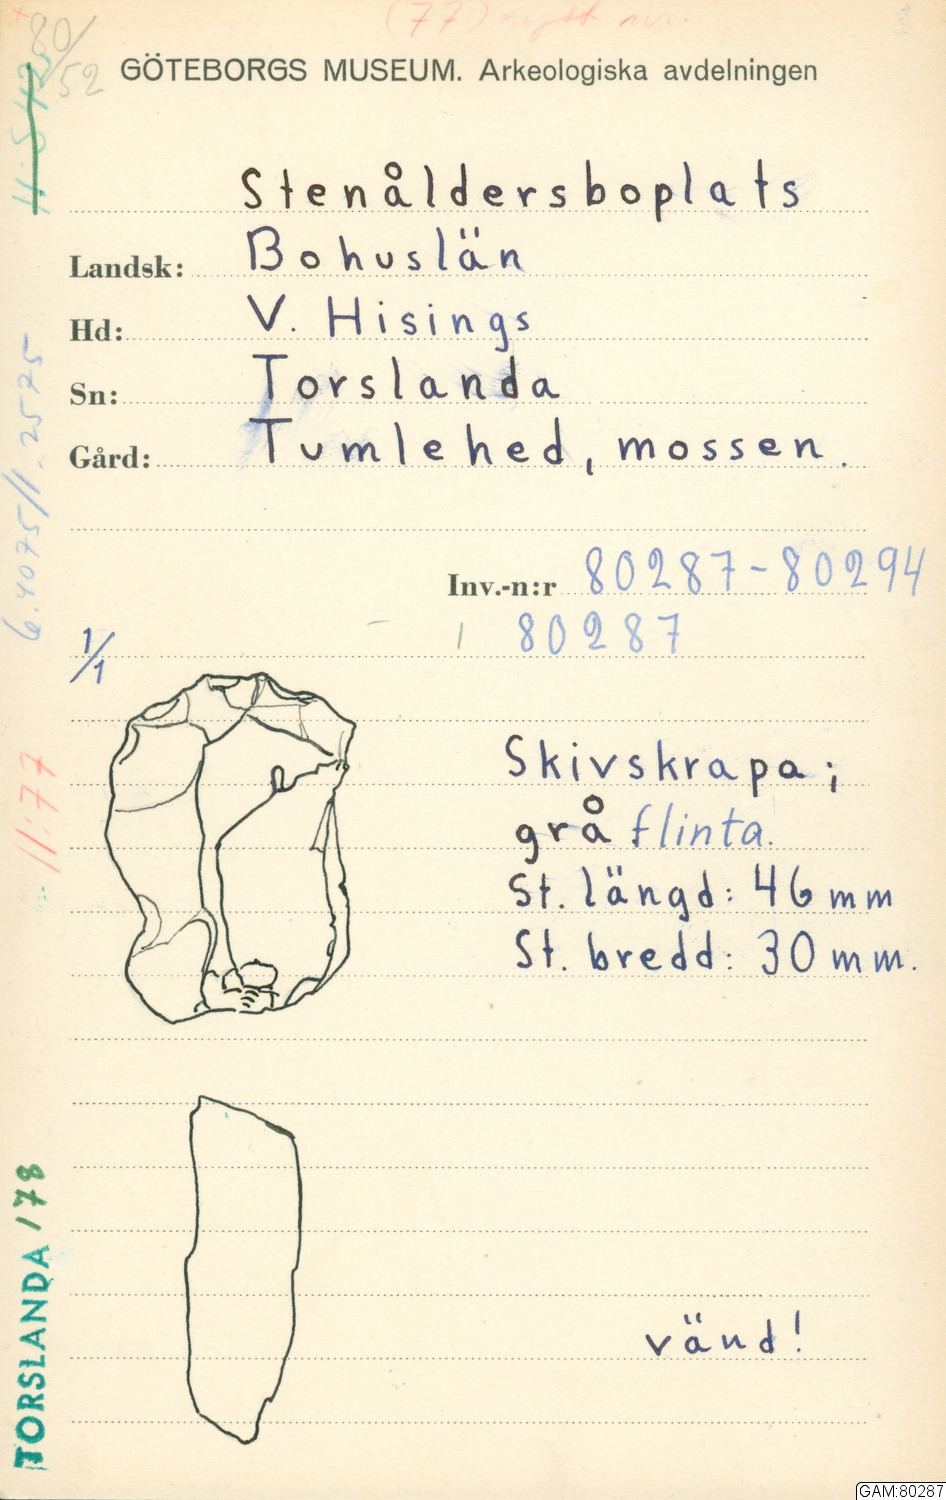 (77) nytt nr.
80/52
GÖTEBORGS MUSEUM. Arkeologiska avdelningen
Stenåldersboplats
Landsk: Bohuslän
Hd: V. Hisings
Sn: Torslanda
Gård: Tumlehed, mossen.
Inv.-n:r 80287-80294
1 80287
1/1
Skivskrapa;
grå flinta.
St. längd: 46 mm
St. bredd: 30 mm.
vänd!
6.4075/1.2575
11:77
TORSLANDA /78
GAM:80287